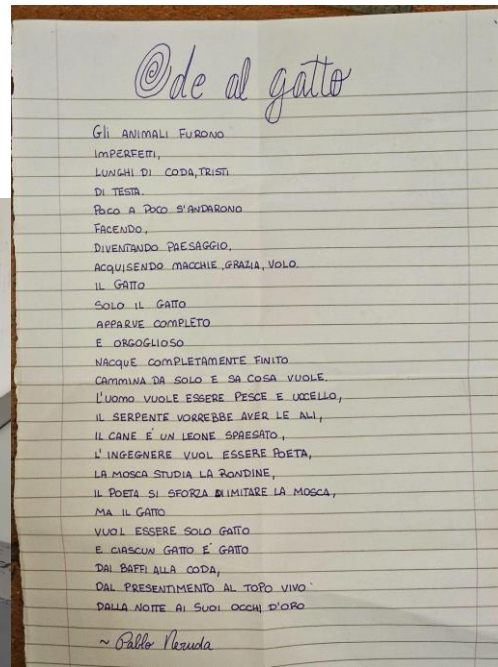 Ode al gatto
Gli ANIMALI FURONO
IMPERFETTI,
LUNGHI DI CODA, TRISTI
DI TESTA.
POCO A POCO S'ANDARONO
FACENDO,
DIVENTANDO PAESAGGIO,
ACQUISENDO MACCHIE, GRAZIA, VOLO.
IL GATTO
SOLO IL GATTO
APPARVE COMPLETO
E ORGOGLIOSO
NACQUE COMPLETAMENTE FINITO
CAMMINA DA SOLO E SA COSA VUOLE.
L'UOMO VUOLE ESSERE PESCE E UCCELLO,
IL SERPENTE VORREBBE AVER LE ALI,
IL CANE E' UN LEONE SPAESATO,
L'INGEGNERE VUOL ESSERE POETA,
LA MOSCA STUDIA LA RONDINE,
IL POETA SI SFORZA DI IMITARE LA MOSCA,
MA IL GATTO
VUOL ESSERE SOLO GATTO
E CIASCUN GATTO E' GATTO
DAI BAFFI ALLA CODA,
DAL PRESENTIMENTO AL TOPO VIVO
DALLA NOTTE AI SUOI OCCHI D'ORO
~ Pablo Neruda